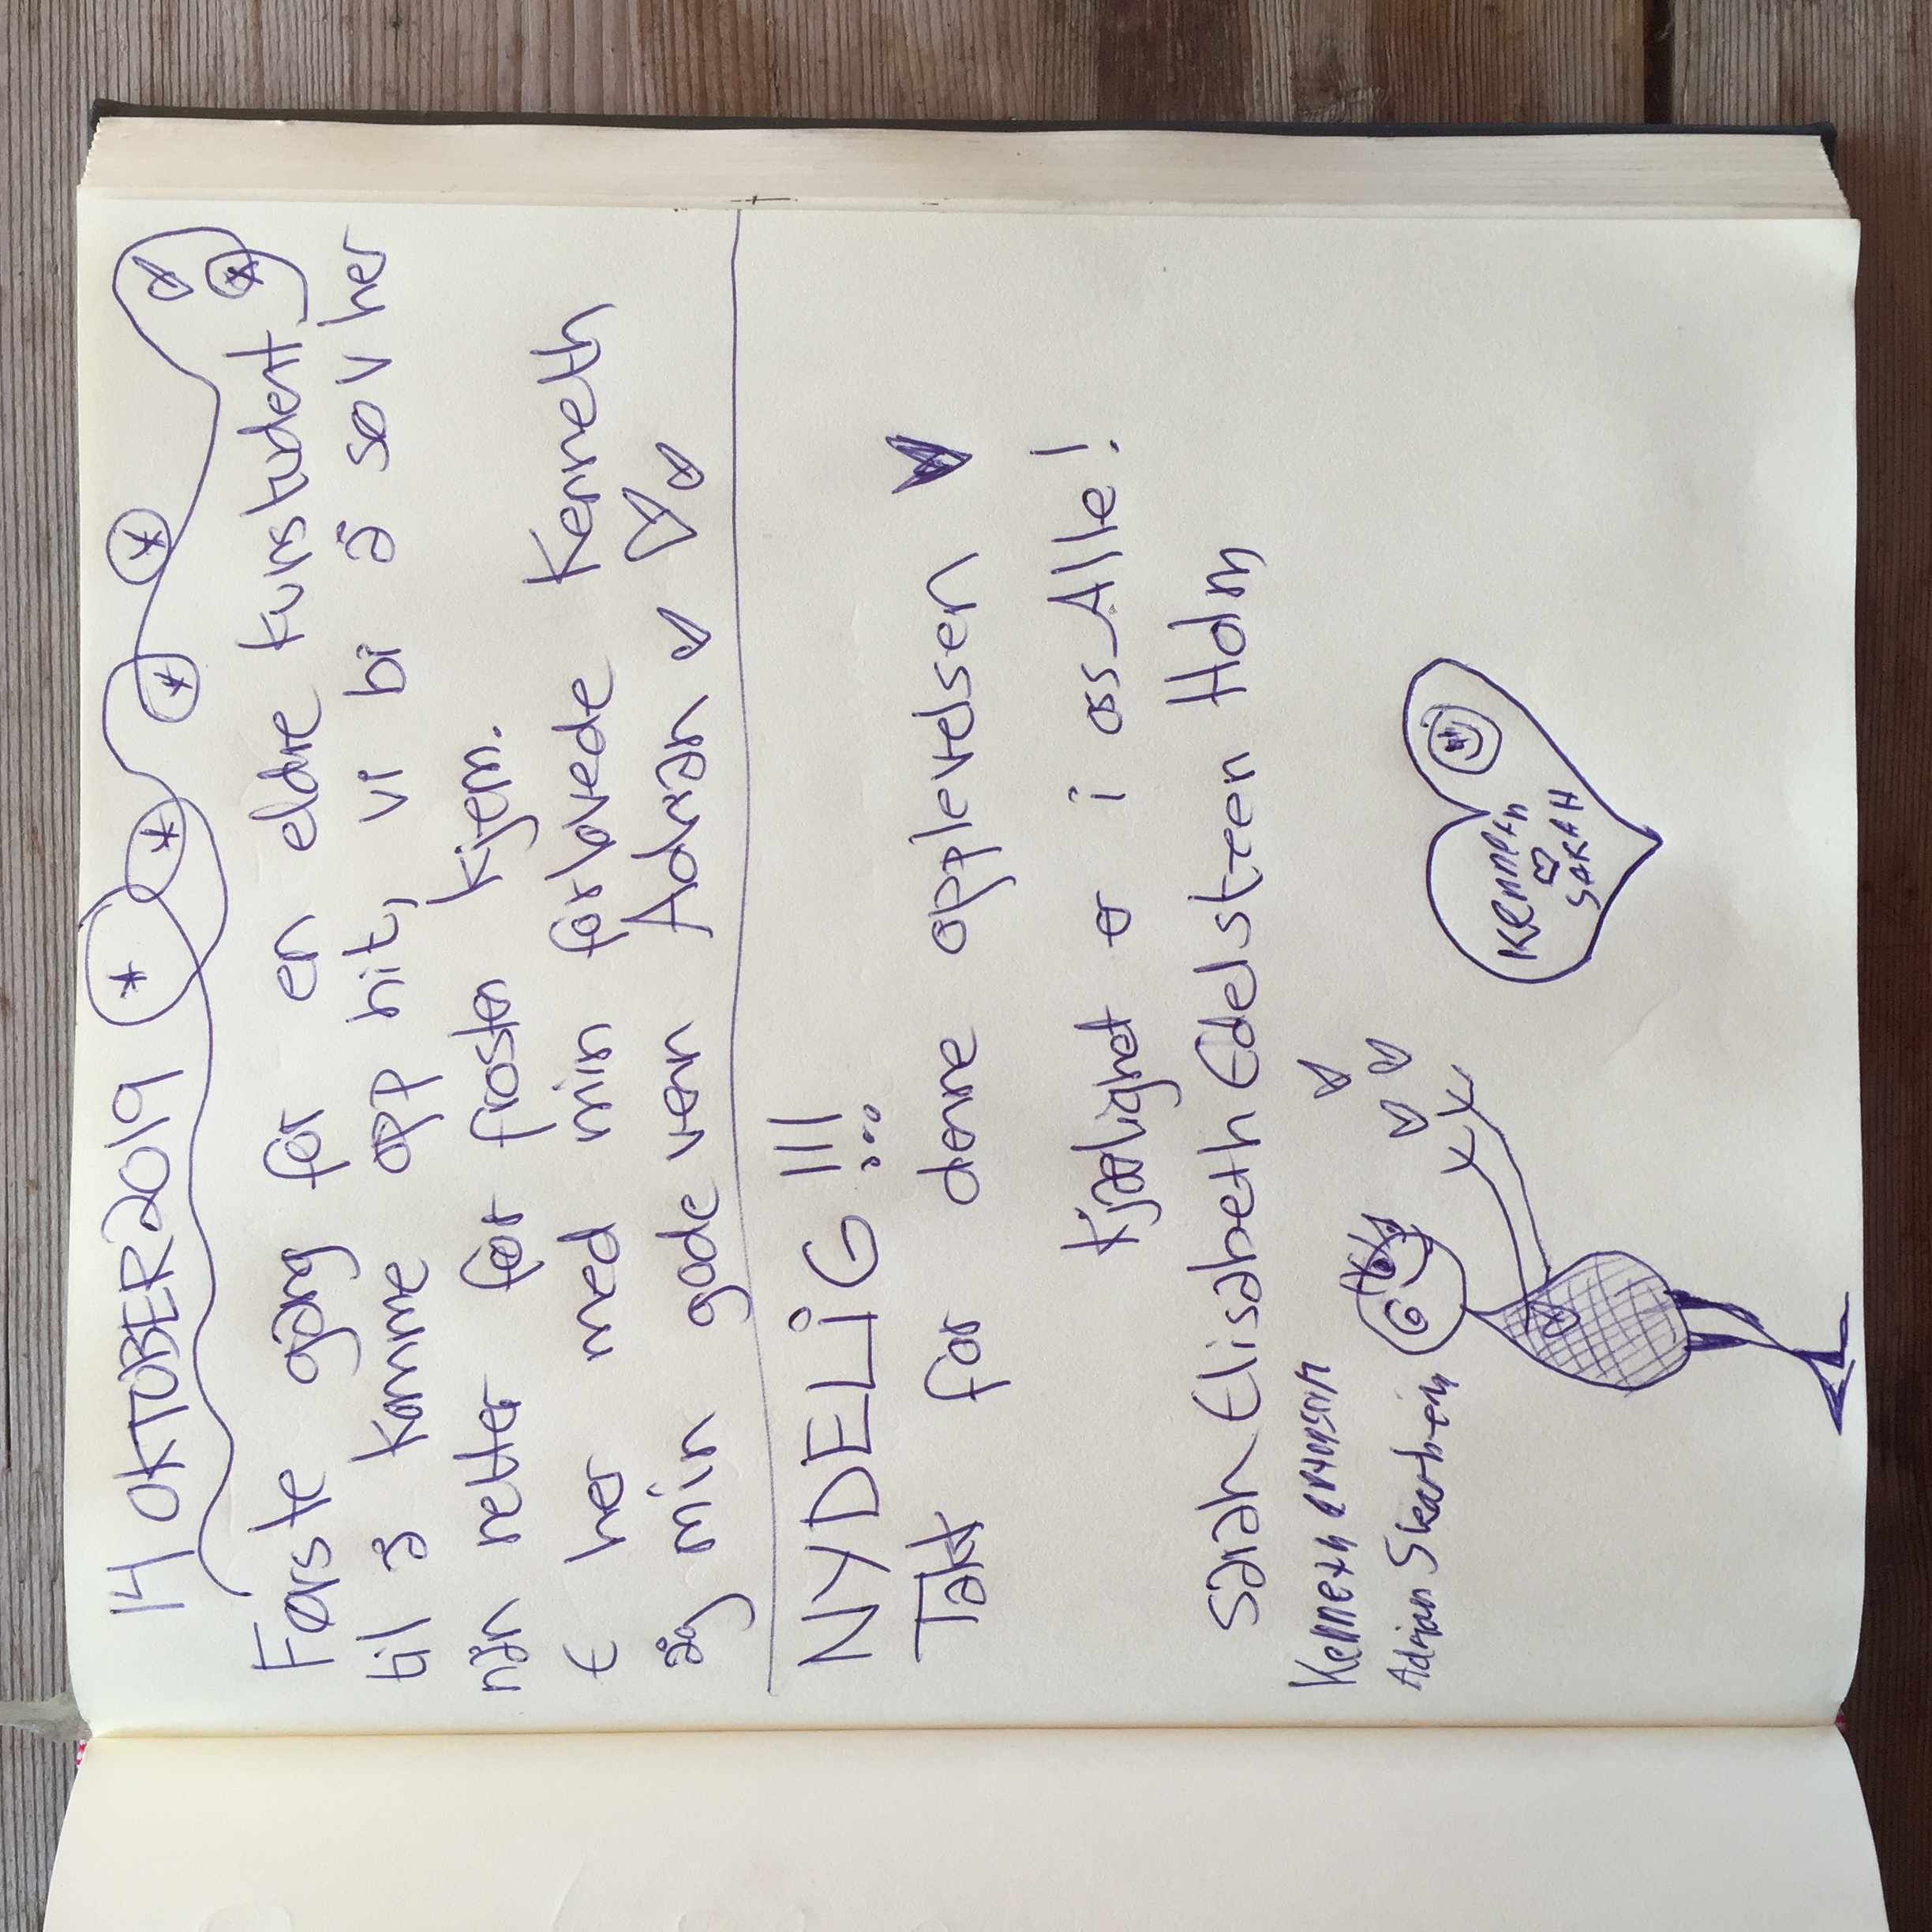 14 OKTOBER 2019
Første gang før en eldre kunstudent
til å komme opp hit, vi bi å sol her
når netter før froster kjem.
E her med min forlovede Kenneth
åg min gode venn Adrian
NYDELiG !!!
Takk for denne opplevelsen
Kjærlighet er i oss Alle!
Sarah Elisabeth Edelsteen Holm
Kenneth
Adrian
Kenneth
SARAH